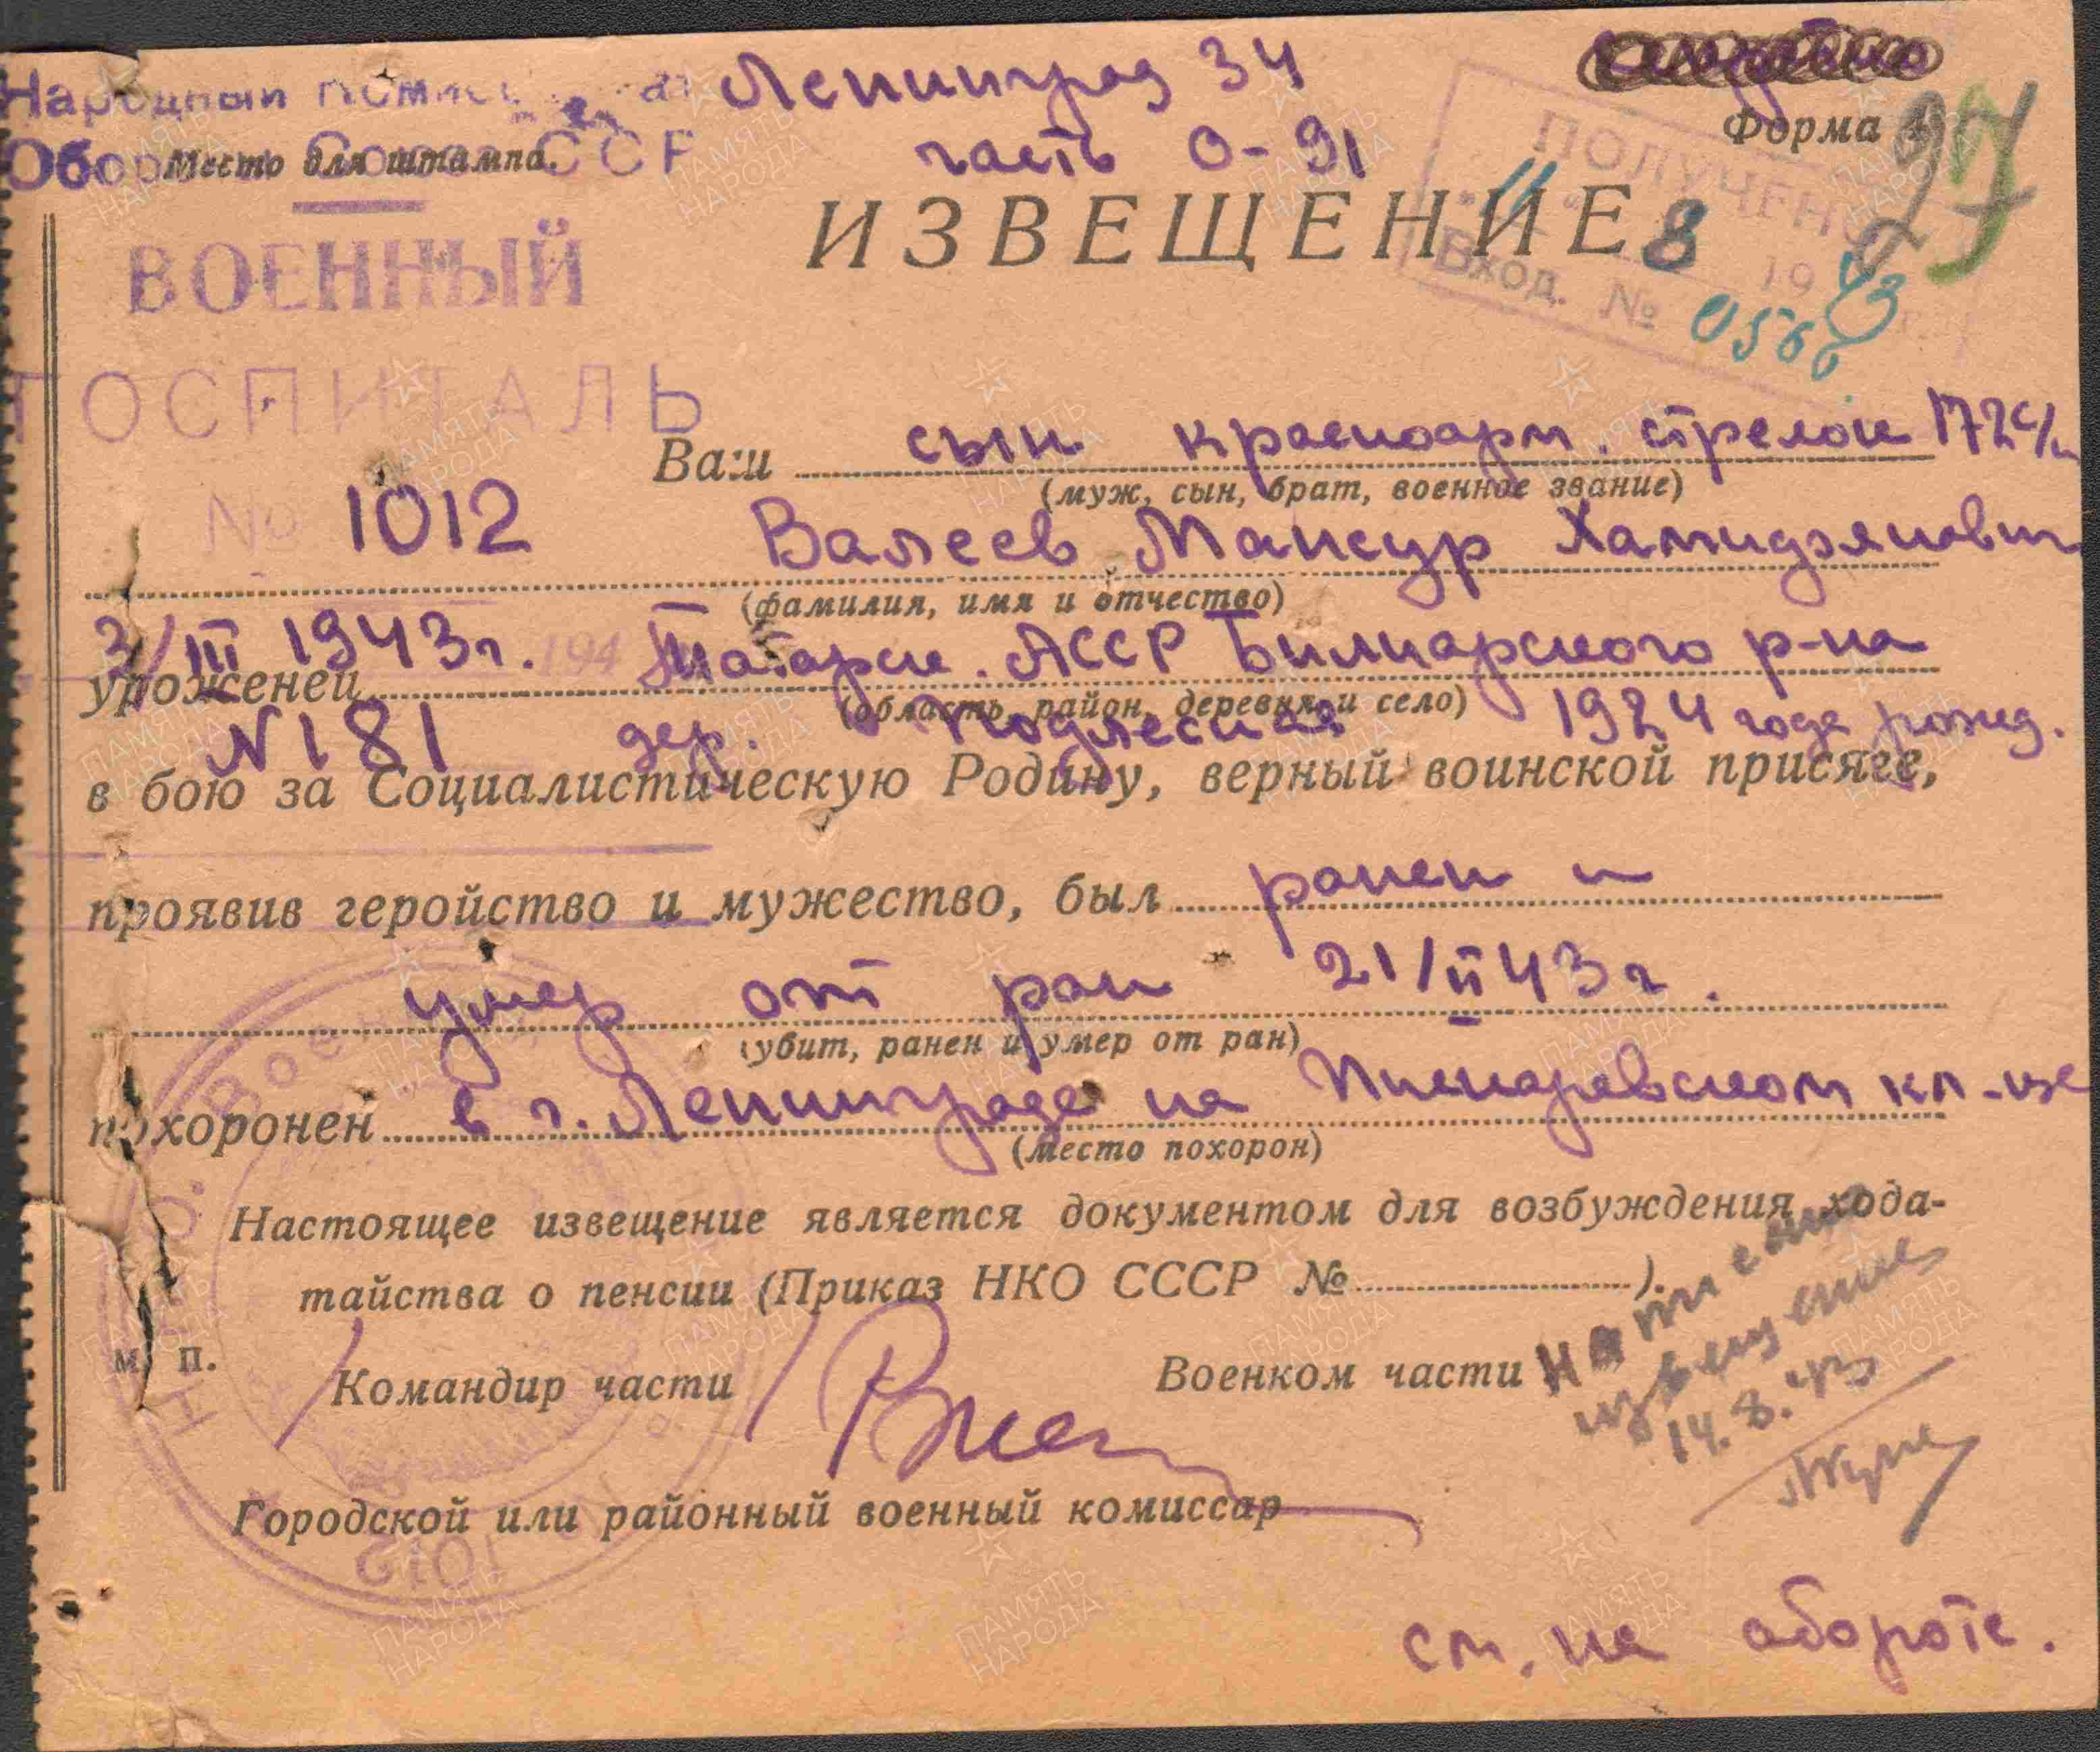 Народный
Ленинград 34
Форма
Место для штампа.
часть О-91
ПОЛУЧЕНО
"11" 8 1943 г.
Вход. № 0566
ИЗВЕЩЕНИЕ
ВОЕННЫЙ
ГОСПИТАЛЬ
Ваш сын красноарм. стрелок 172 с/п
(муж, сын, брат, военное звание)
№ 1012
Валеев Мансур Хамидзянович
(фамилия, имя и отчество)
3/III 1943 г. 194
уроженец Татарск. АССР Билиарского р-на
(область, район, деревня и село)
N 181
дер. Подлесная 1924 года рожд.
в бою за Социалистическую Родину, верный воинской присяге,
проявив геройство и мужество, был ранен и
умер от ран 21/II 43 г.
(убит, ранен и умер от ран)
похоронен в г. Ленинграде на Пискаревском кл-ще
(место похорон)
Настоящее извещение является документом для возбуждения хода-
тайства о пенсии (Приказ НКО СССР № ).
м. п.
Командир части
Военком части
извещение
14.8.43
Городской или районный военный комиссар
1012
см. на обороте.
ПАМЯТЬ
НАРОДА